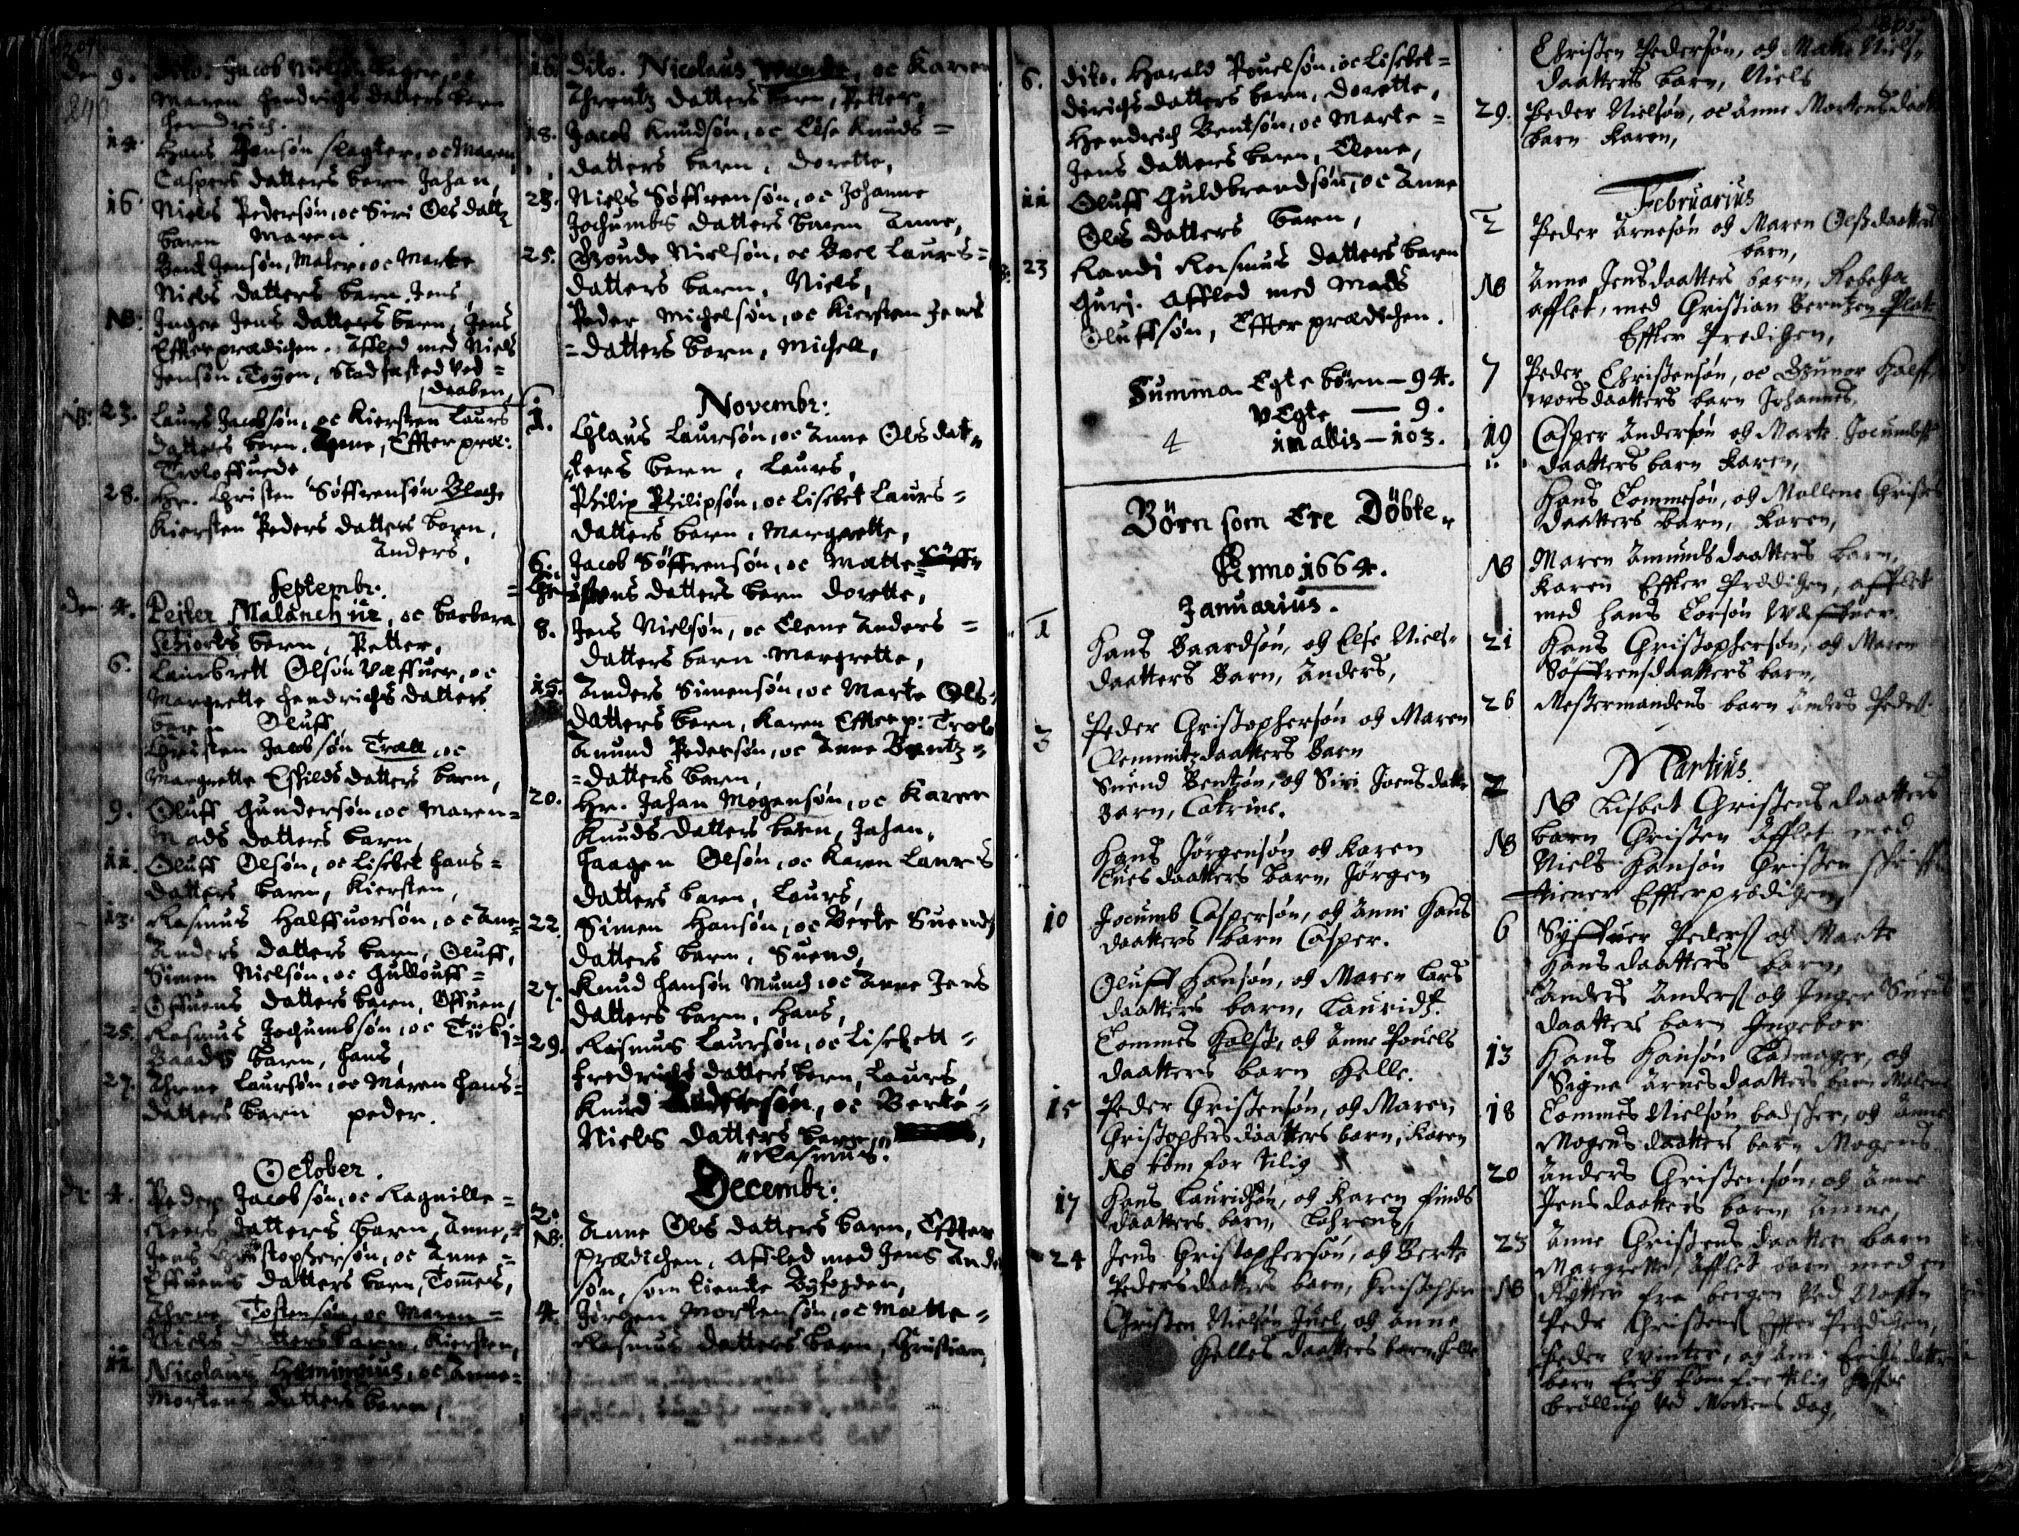 204
Den 9. dito. Jacob Nielsøn bager, oc
Maren hendrichs datters barn
hendrich.
14. Hans Jensøn slagter, oc Maren
Caspers datters barn Johan,
16. Niels Pedersøn, oc Siri Ols datt
barn Maren.
Bent Jensøn, Maler, oc Marte
Niels datters barn Jens
NB: Inger Jens datters barn, Jens
Effter prædichen. Affled med Niels
Jensøn Toyen, Stadfasted ved =
daaben,
NB: 23. Laurs Jacobsøn, oc Kiersten Laurs
datters barn. Anne, Effter præ:
Troloffuede
28. Hr. Christen Søffrensøn Blache
Kiersten Peders datters barn,
Anders,
Septembr:
den 4. Peiter Malanchur, oc barbara
barn, Petter,
6. Lambrett Olsøn Væffuer, oc
Margrette hendrichs datters
barn Oluff
Christen Jacobsøn Trall, oc
Margrette Eskilds datters barn,
9. Oluff Gundersøn, oc Maren =
Mads datters barn
11. Oluff Olsøn, oc Lisebet hans =
datters barn, Kiersten,
13. Rasmus Halffuorsøn, oc Ane
Anders datters barn, Oluff,
Simen Nielsøn, oc Gullouff =
= Offuens datters barn, Offuen,
25. Rasmus Jochumbsøn, oc
Baads barn, hans,
27. Arne Laursøn, oc Maren hans =
datters barn peder.
October.
4. Peder Jacobsøn, oc Ragnille =
datters barn, Anne,
Jens Christophersøn, oc Anne =
Effuens datters barn, Tomes,
Arne Tostensøn, oc Maren =
Niels datters barn, Kiersten,
11. Nicolaus Hemingius, oc Anne =
Mortens datters barn,
16. dito. Nicolaus , oc Karen
Arentz datters barn, Petter,
18. Jacob Knudsøn, oc Else Knuds =
datters barn, dorette,
23. Niels Søffrensøn, oc Johanne
Jochumbs datters barn Anne,
25. Gonde Nielsøn, oc Boel Laurs =
datters barn, Niels,
Peder Michelsøn, oc Kiersten Jens
= datters barn, Michell,
Novembr:
1. Claus Laursøn, oc Anne Ols dat =
ters barn, Laurs,
Philip Philipsøn, oc Lisebet Laurs =
datters barn, Margrette,
6. Jacob Søffrensøn, oc Matte
datters barn dorette,
8. Jens Nielsøn, oc Elene Anders =
datters barn Margrette,
15. Anders Simensøn, oc Marte Ols =
datters barn, Karen Effter p: Trolo
Amund Pedersøn, oc Anne Bentz =
= datters barn,
20. Hr. Johan Mogensøn, oc Karen
Knuds datters barn, Johan,
Haagen Olsøn, oc Karen Laurs
datters barn, Laurs,
22. Simen Hansøn, oc Berte Suends
datters barn, Suend,
27. Knud Hansøn Munch, oc Anne Jens
datters barn, Hans,
29. Rasmus Laursøn, oc Lisebett =
fredrichs datters barn, Laurs,
Knud , oc Berte =
Niels datters barn,
Rasmus.
Decembr:
2. Anne Ols datters barn, Effter
NB: Prædichen, Affled med Jens Ande
søn, som tiente Byfogden,
4. Jørgen Mortensøn, oc Matte =
Rasmus datters barn, Christian,
6. dito. Harald Pouelsøn, oc Lisebet =
dirichs datters barn, dorette,
Hendrich Bentsøn, oc Marte =
Jens datters barn, Elene,
11 Oluff Guldbrandsøn, oc Anne
Ols datters barn,
23 Randi Rasmus datters barn
Guri. Affled med Mads
Oluffsøn, Effter prædichen.
Summa Egte børn — 94.
vEgte — 9.
inalles — 103.
4
Børn som Ere Döbte
Anno 1664.
Januarius.
1 Hans Baardsøn, og Else Niels =
daatters Barn, Anders,
3 Peder Christophersøn og Maren
Clemmitz daatters Barn
Suend Bentsøn, og Siri Joens datte
Barn, Catrine.
Hans Jörgensøn og Karen
daatters barn, Jørgen
10 Jocumb Caspersøn, og Anne Hans
daatters barn Casper.
Oluff Hansøn, og Maren Lars
daatters barn, Lauridz.
Tommes Holst, og Anne Pouels
daatters barn Helle.
15 Peder Christensøn, og Maren
Christophers daatters barn, Karen
NB kom for tilig
17 Hans Lauridsøn, og Karen Finds
daatters barn, Lohrens,
24 Jens Christophersøn, og Berte
Peders daatters barn, Christopher
Christen Nielsøn Juel, og Anne
Helles daatters barn, Helle
205
Christen Pedersøn, og Matte Niels =
daatters barn, Niels
29. Peder Nielsøn, oc Anne Mortens daatt
barn Karen,
Februarius
2 Peder Arnesøn og Maren Olss daatters
barn,
NB Anne Jens daatters barn, Rebecha
afflet, med Christian Berntzen Plat
Effter Predigen,
7 Peder Christensøn, oc Gunor Halff
wors daatters barn Johannes,
19 Casper Andersøn og Marte Jocumbs
daatters barn Karen,
Hans Tommesøn, og Mallene Christens
daatters barn, Karen,
NB Maren Amunds daatters barn,
Karen Effter Predigen, afflet
med Hans Torsøn Wæffuer.
21 Hans Christophersøn, og Maren
Søffrens daatters barn,
26 Mestermandens barn Anders Peders
Martius
2 NB Lisbet Christens daatters
NB barn Christen Afflet med
Niels Hansøn Christen
tiener Effter prædigen,
6 Syffuer Peders og Marte
Hans daatters barn,
Anders Anders og Inger Suends
daatters barn Ingebor
13 Hans Hansøn , og
Signe Arnes daatters barn Malene
18 Tommes Nielsøn badskær, og Anne
Mogens daatters barn Mogens
20 Anders Christensøn, og Anne
Jens daatters barn Anne,
23 Anne Christens daatter barn
Margrette, Afflet barn med en
NB Rytter fra bergen Ved Nafn
Peder Christens Effter Predigen,
Peder Winter, og Anne Erichs datter
barn Erich kom for tilig Hoffde
brøllup Ved Mortens dag,